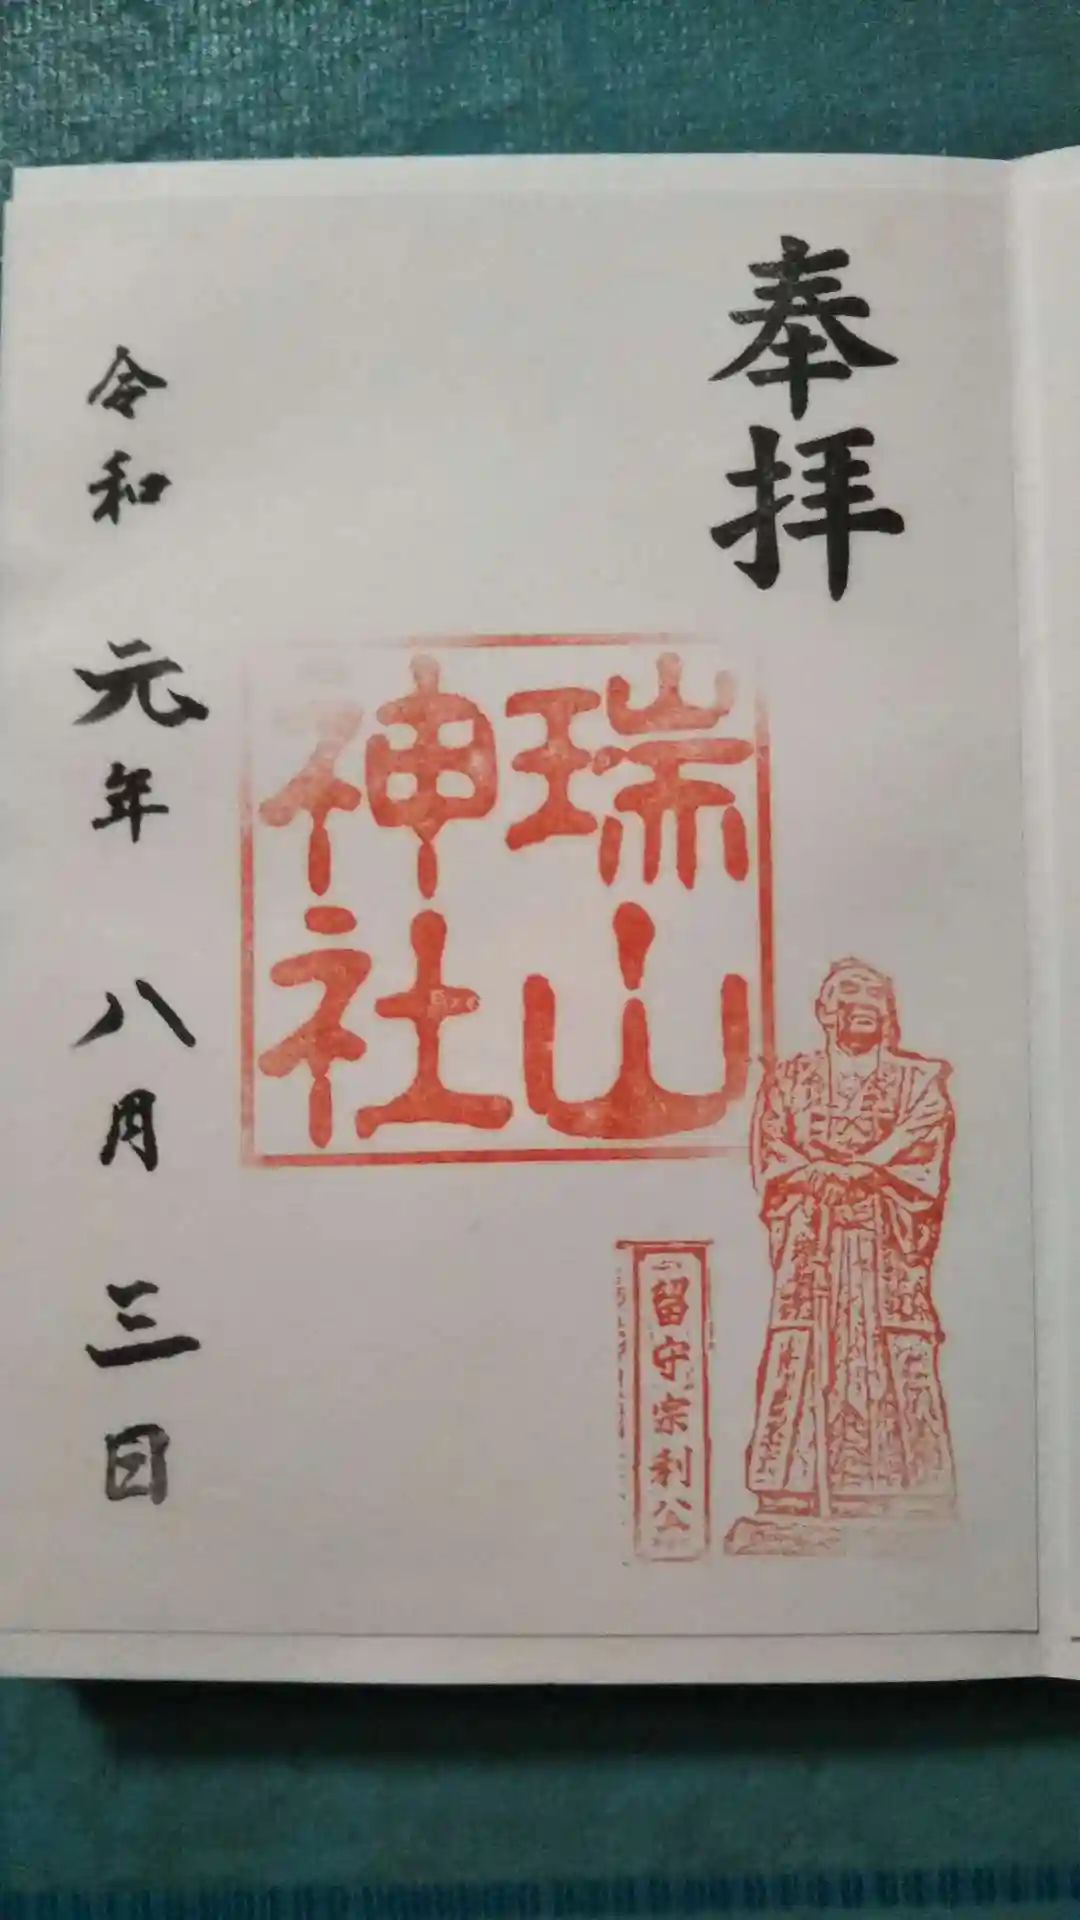 奉拝
瑞山
神社
留守宗利公
令和 元年 八月 三日